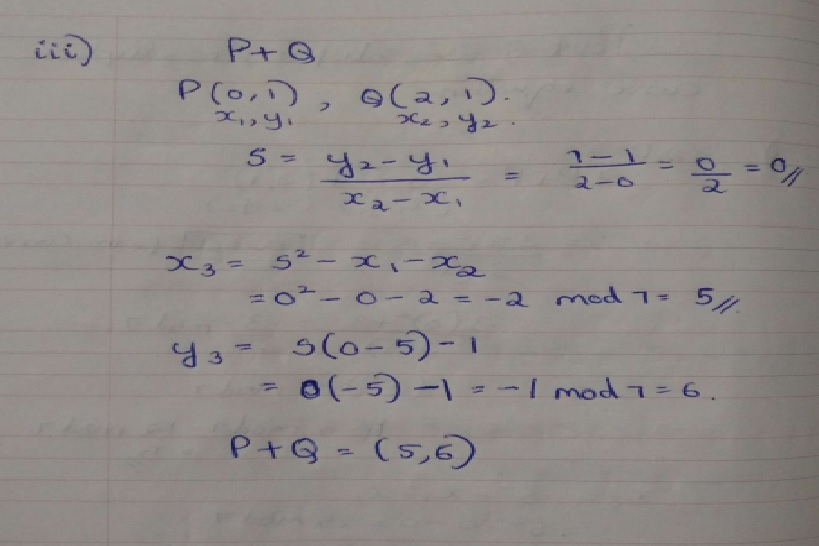 iii) P+Q
P(0,1), Q(2,1).
x₁,y₁ x₂,y₂.
S = (y₂-y₁)/(x₂-x₁) = (1-1)/(2-0) = 0/2 = 0//
x₃ = S²-x₁-x₂
=0²-0-2 = -2 mod 7= 5//
y₃= S(0-5)-1
= 0(-5)-1=-1 mod 7=6.
P+Q = (5,6)